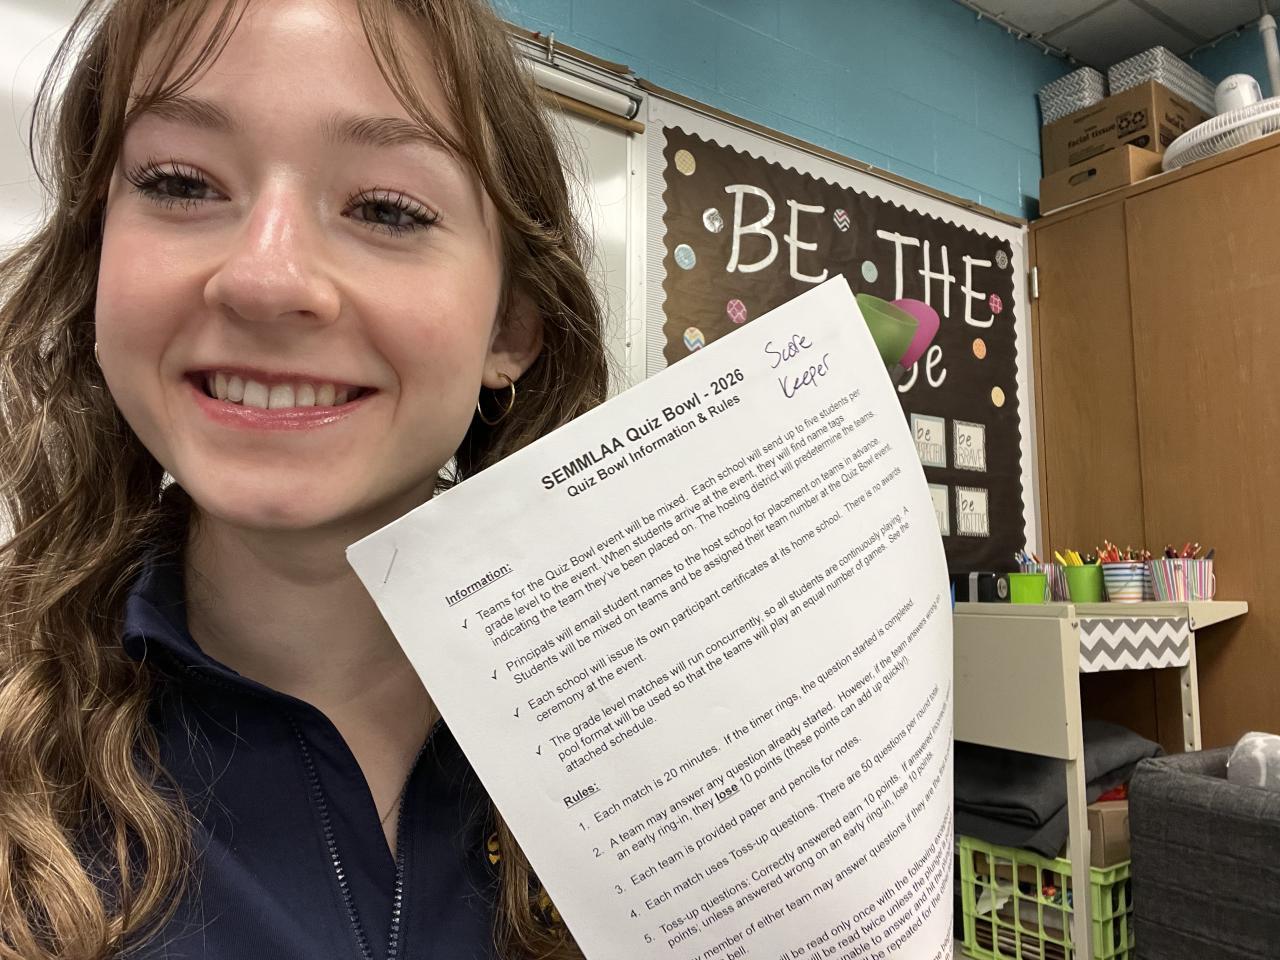 BE THE
ge
be
be
BRAVE
be
facial tissue
Score
Keeper
SEMMLAA Quiz Bowl - 2026
Quiz Bowl Information & Rules
Information:
✓ Teams for the Quiz Bowl event will be mixed. Each school will send up to five students per
grade level to the event. When students arrive at the event, they will find name tags
indicating the team they've been placed on. The hosting district will predetermine the teams.
✓ Principals will email student names to the host school for placement on teams in advance.
Students will be mixed on teams and be assigned their team number at the Quiz Bowl event.
✓ Each school will issue its own participant certificates at its home school. There is no awards
ceremony at the event.
✓ The grade level matches will run concurrently, so all students are continuously playing. A
pool format will be used so that the teams will play an equal number of games. See the
attached schedule.
Rules:
1. Each match is 20 minutes. If the timer rings, the question started is completed.
2. A team may answer any question already started. However, if the team answers wrong on
an early ring-in, they lose 10 points (these points can add up quickly!).
3. Each team is provided paper and pencils for notes.
4. Each match uses Toss-up questions. There are 50 questions per round total.
5. Toss-up questions: Correctly answered earn 10 points. If answered
points; unless answered wrong on an early ring-in, lose 10 points.
member of either team may answer questions if they are the
bell.
will be read only once with the following
be read twice unless the
unable to answer and hit the
be repeated for the